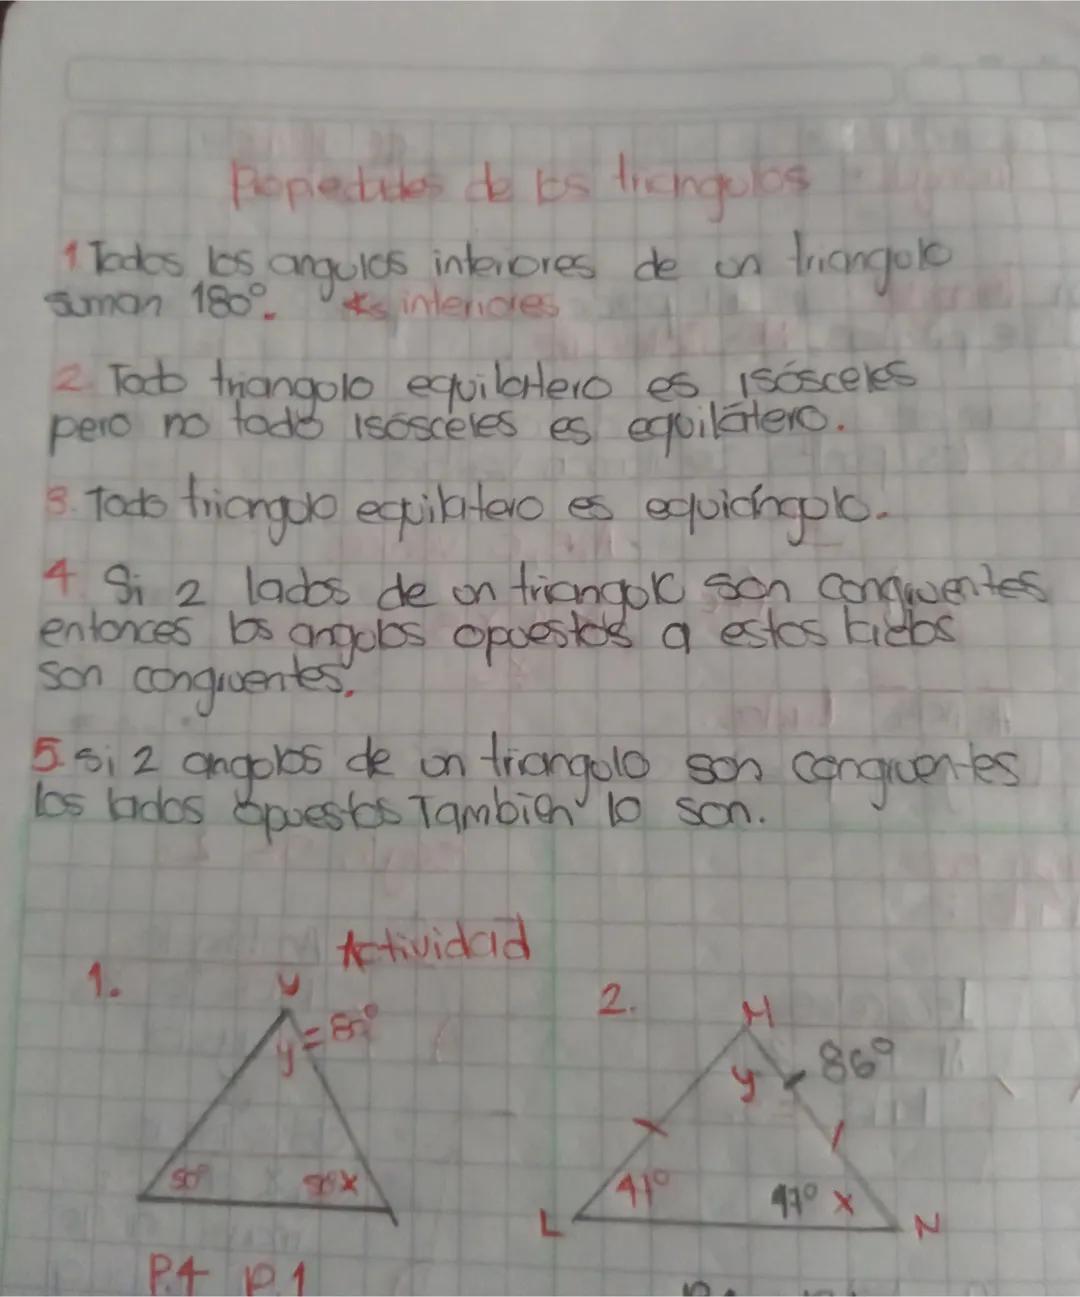 Propiedades de los triangulos
1 Todos los angulos interiores de un triangulo
suman 180°. *s interiores
2. Todo triangolo equilátero es isósceles
pero no todo isósceles es equilátero.
3. Todo triangulo equilatero es equiángolo.
4 Si 2 lados de un triangolo son congruentes
entonces los angolos opuestos a estos lados
son congruentes.
5. si 2 angolos de un triangulo son congruentes
los lados opuestos También lo son.
Actividad
1.
y = 8
50° x
2.
M
y 86°
41° 41° x
L N
P.4 P.1